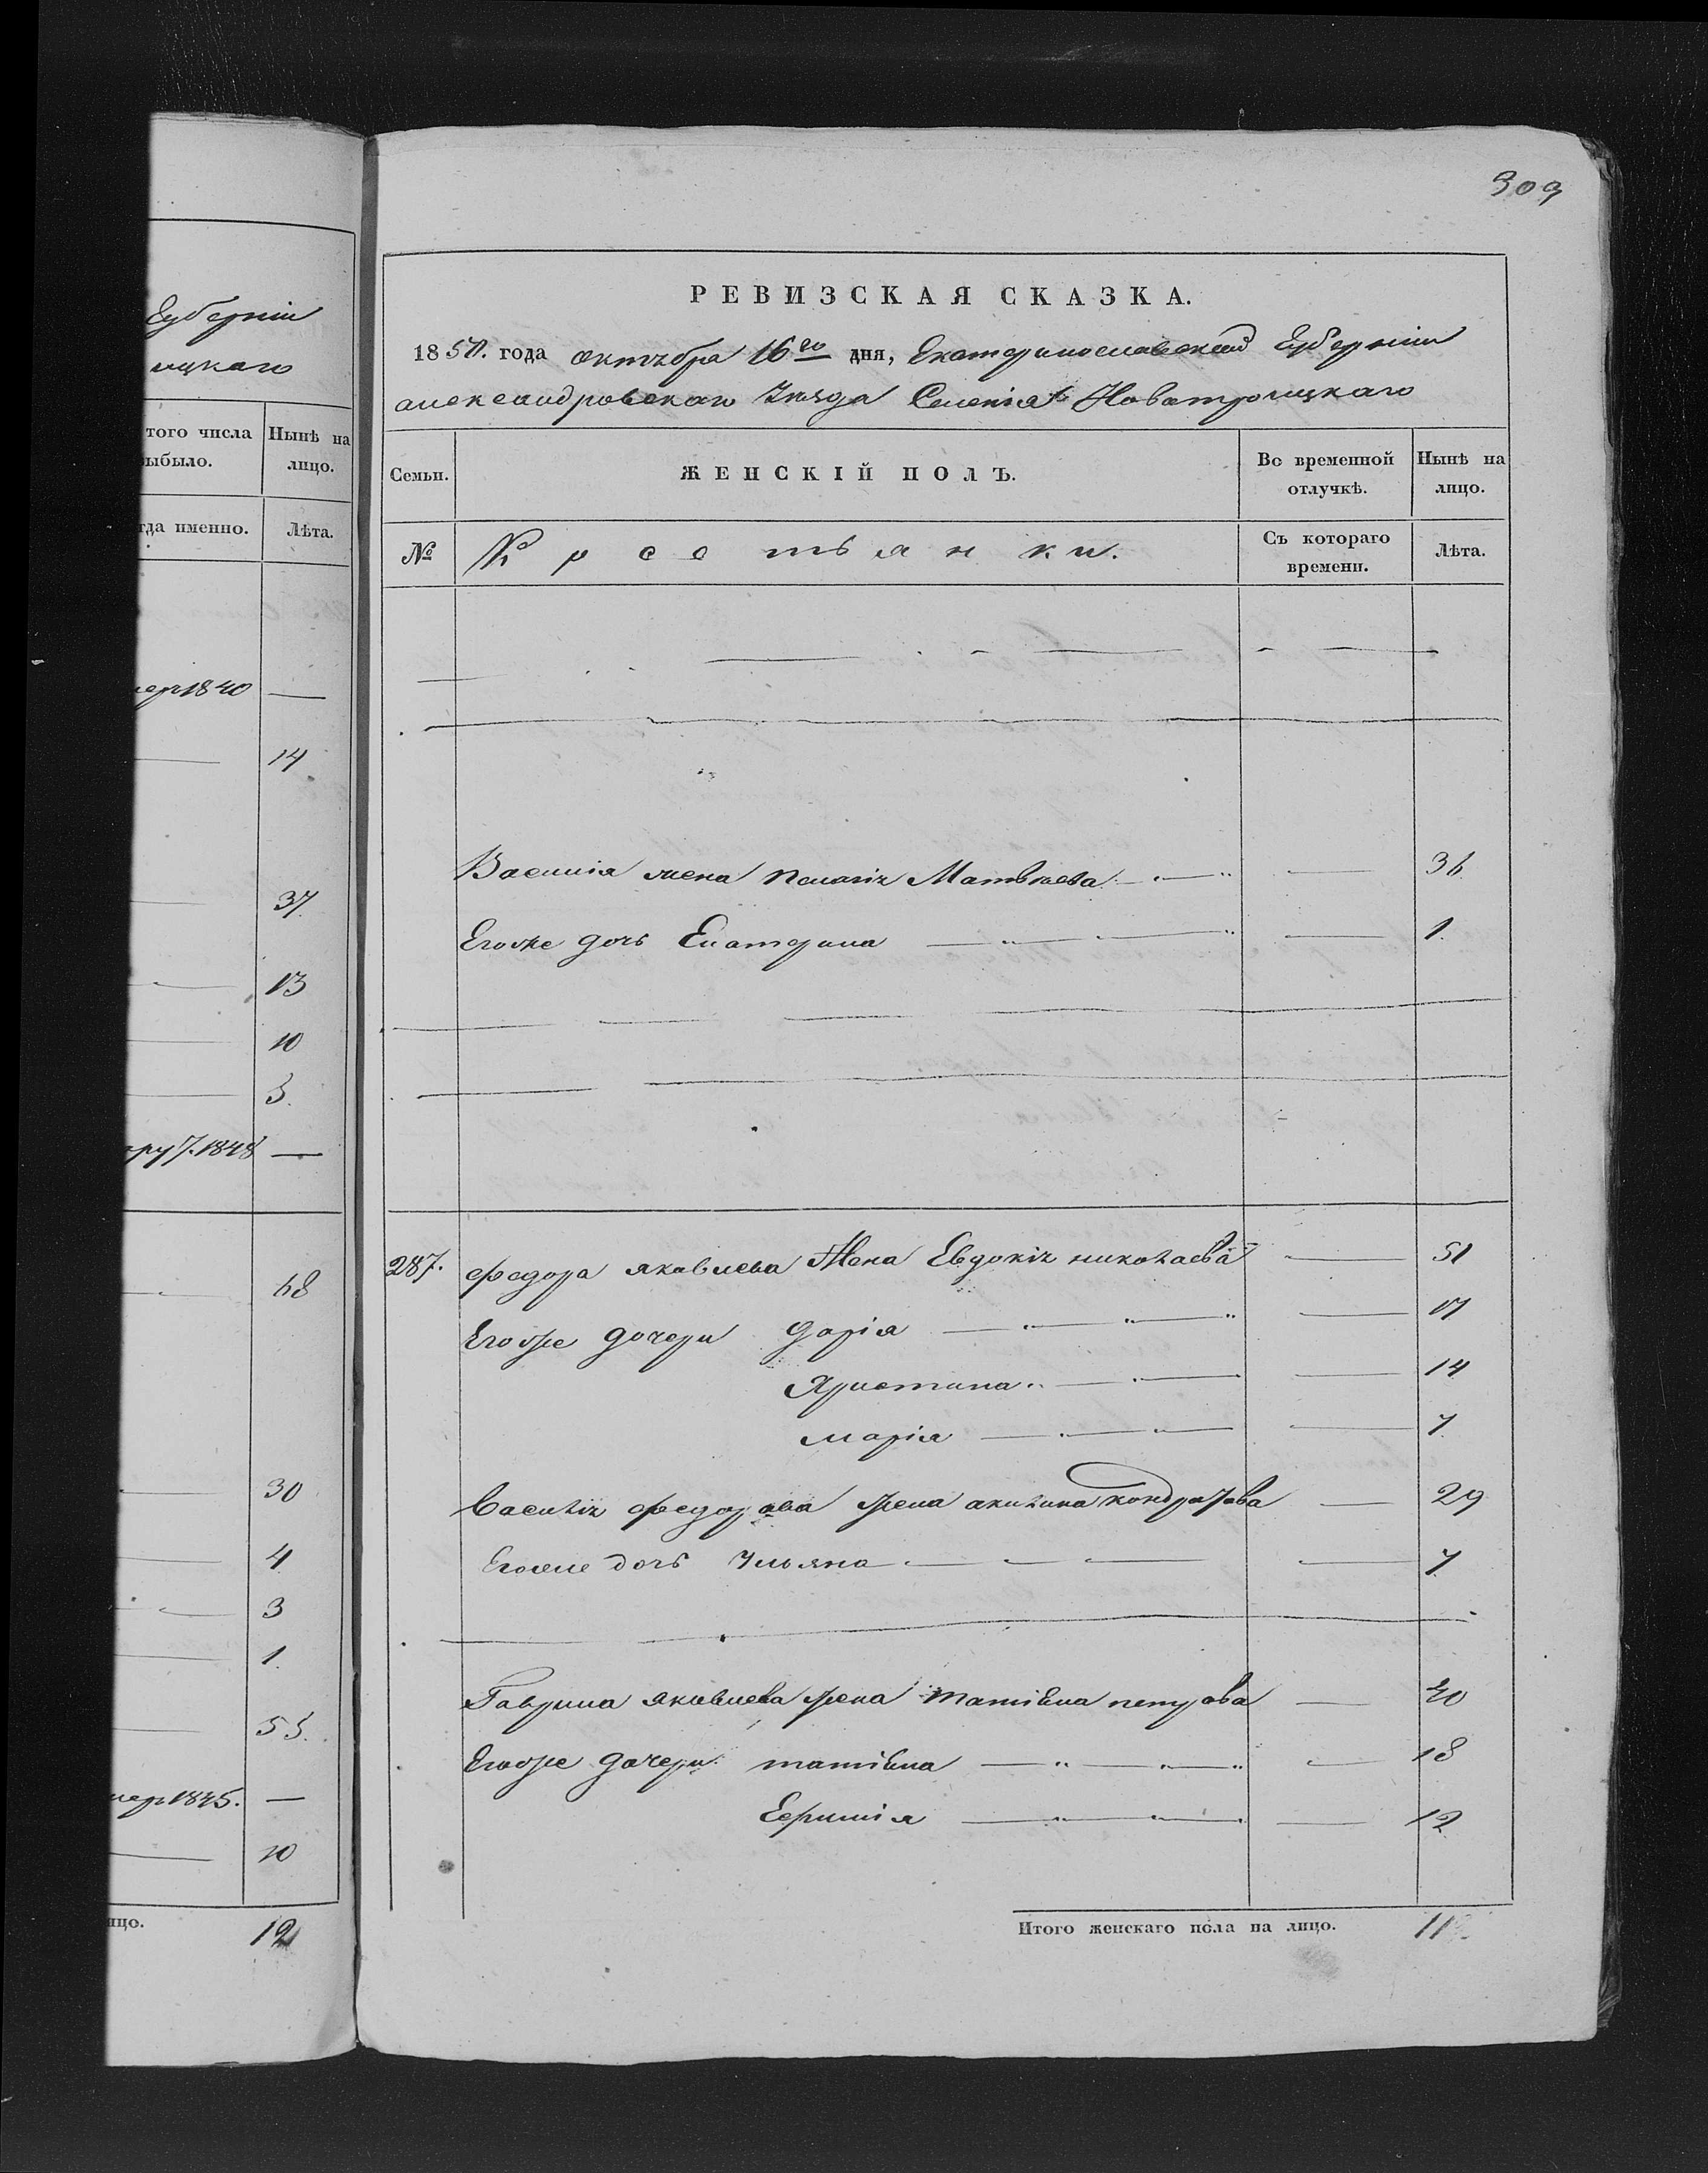 309
Губерніи
ицкаго
того числа
выбыло.
Нынѣ на
лицо.
гда именно.
Лѣта.
мер 1840 —
14
37.
13
10
5.
7. 1848 —
48
30
4
3
1.
55.
мер 1845. —
10
ицо. 12
РЕВИЗСКАЯ СКАЗКА.
1850. года октября 16го дня, Екатеринославской Губерніи
александровскаго уѣзда Селенія Новотроицкаго
Семьи.
ЖЕНСКІЙ ПОЛЪ.
Во временной
отлучкѣ.
Нынѣ на
лицо.
№
Крестьянки.
Съ котораго
времени.
Лѣта.
Василія жена Пелагія Матвѣева — 36
Егоже дочь Екатерина — 1.
287. Федора яковлева Жена Евдокія николаева — 51
Егоже дочери дарія — 17
Христина — 14
марія — 7
Василія федорова жена акилина кондратова — 29
Егоже дочь Ульяна — 7
Гаврила яковлева жена татіяна петрова — 40
Егоже дочери татіяна — 18
Ефимія — 12
Итого женскаго пола на лицо. 11